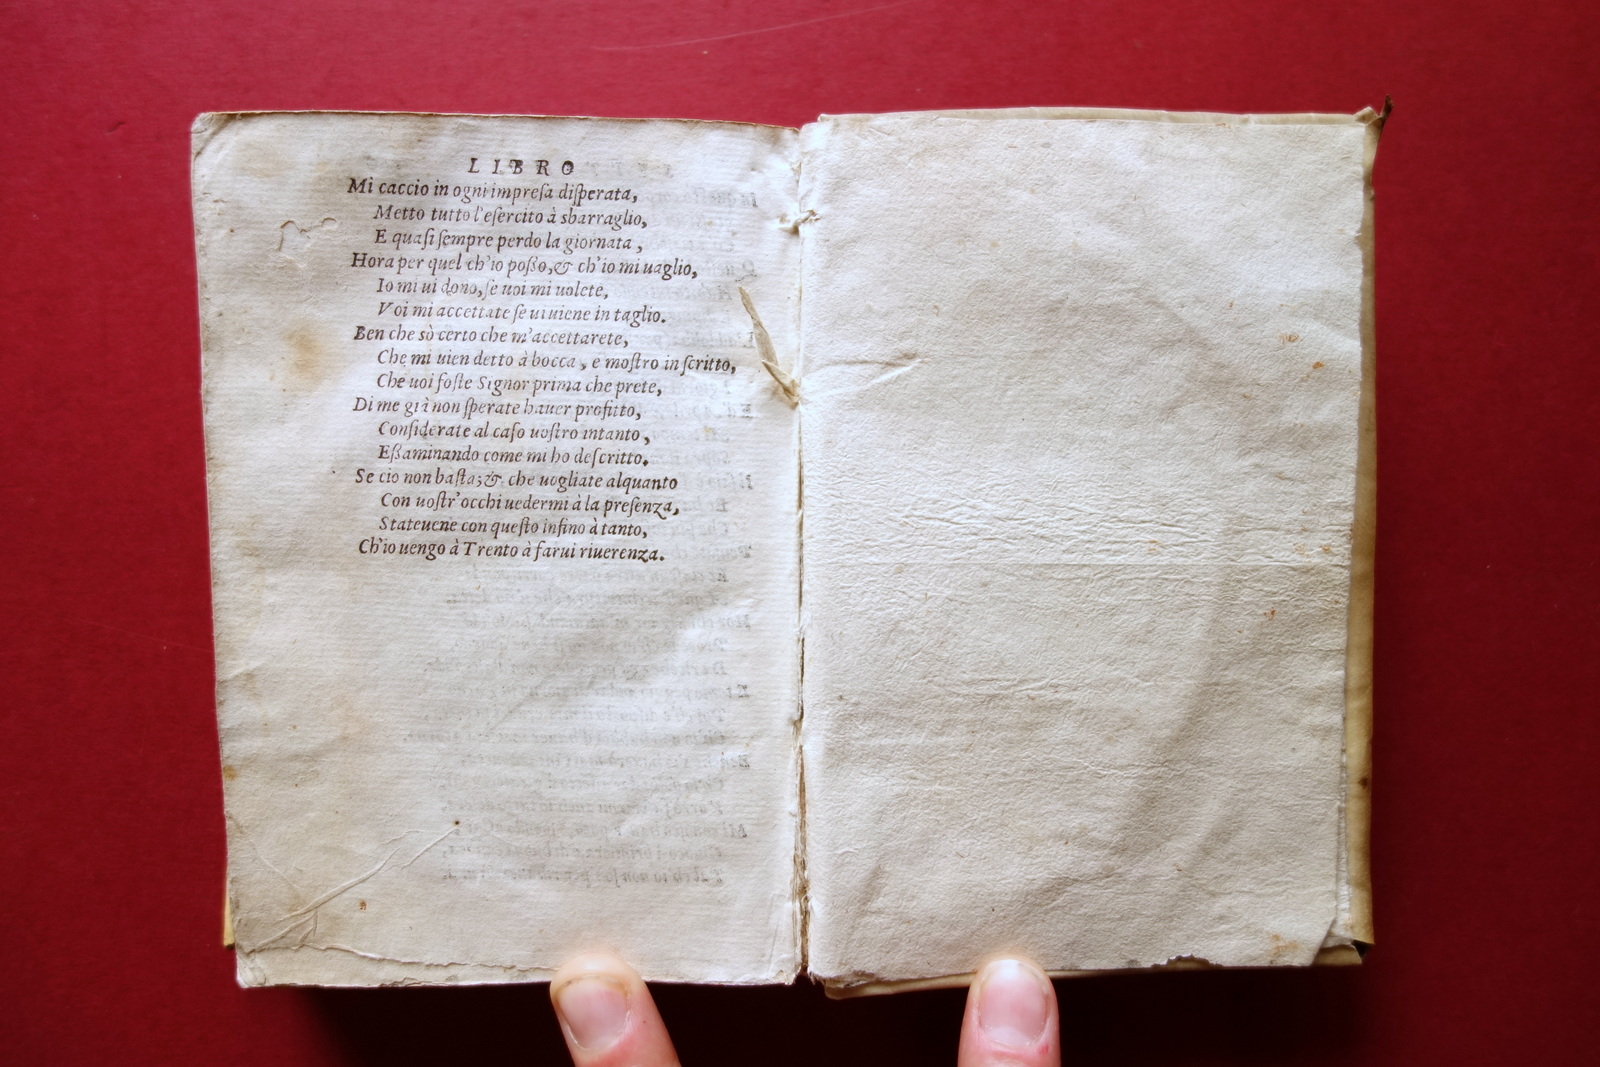 LIBRO
Mi caccio in ogni impreſa diſperata,
Metto tutto l'eſercito à sbarraglio,
E quaſi ſempre perdo la giornata,
Hora per quel ch'io poßo, & ch'io mi uaglio,
Io mi ui dono, ſe uoi mi uolete,
Voi mi accettate ſe ui uiene in taglio.
Ben che sò certo che m'accettarete,
Che mi uien detto à bocca, e moſtro in ſcritto,
Che uoi foſte Signor prima che prete,
Di me già non ſperate hauer profitto,
Conſiderate al caſo uoſtro intanto,
Eßaminando come mi ho deſcritto.
Se cio non baſta; & che uogliate alquanto
Con uoſtr'occhi uedermi à la preſenza,
Stateuene con queſto infino à tanto,
Ch'io uengo à Trento à farui riuerenza.